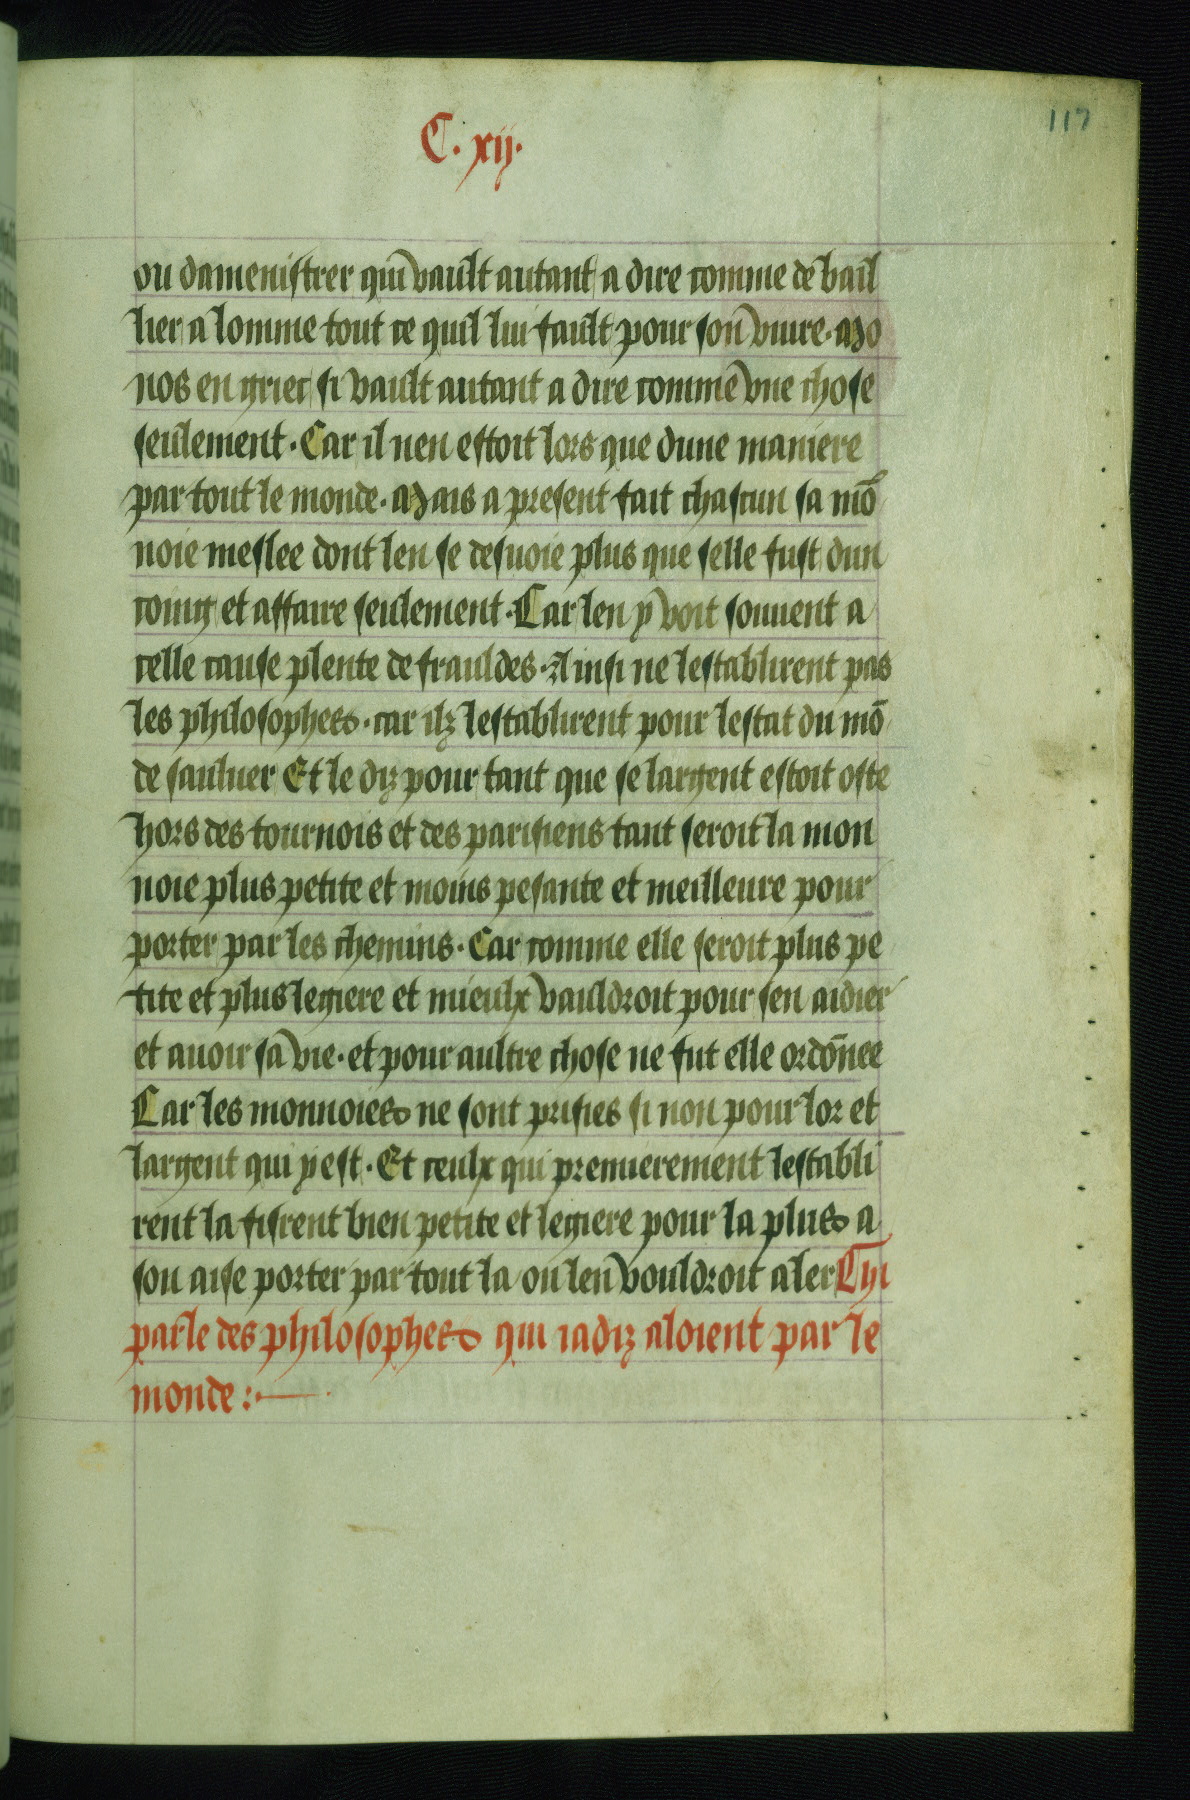 117
C. xij.
ou damenistrer qui vault autant a dire comme de bail
lier a lomme tout ce quil lui fault pour son viure. Mo
nos en griec si vault autant a dire comme vne chose
seulement. Car il nen estoit lors que dune maniere
par tout le monde. Mais a present fait chascun sa mō
noie meslee dont len se desuoie plus que selle fust dun
coing et affaire seulement. Car len y voit souuent a
celle cause plente de frauldes. Ainsi ne lestablirent pas
les philosophes. car ilz lestablirent pour lestat du mō
de sauluer Et le diz pour tant que se largent estoit oste
hors des tournois et des parisiens tant seroit la mon
noie plus petite et moins pesante et meilleure pour
porter par les chemins. Car comme elle seroit plus pe
tite et plus legiere et mieulx vauldroit pour sen aidier
et auoir sa vie. et pour aultre chose ne fut elle ordōnee
Car les monnoies ne sont prisies si non pour lor et
largent qui y est. Et ceulx qui premierement lestabli
rent la firent bien petite et legiere pour la plus a
son aise porter par tout la ou len vouldroit aler Cy
parle des philosophes qui iadiz aloient par le
monde :.